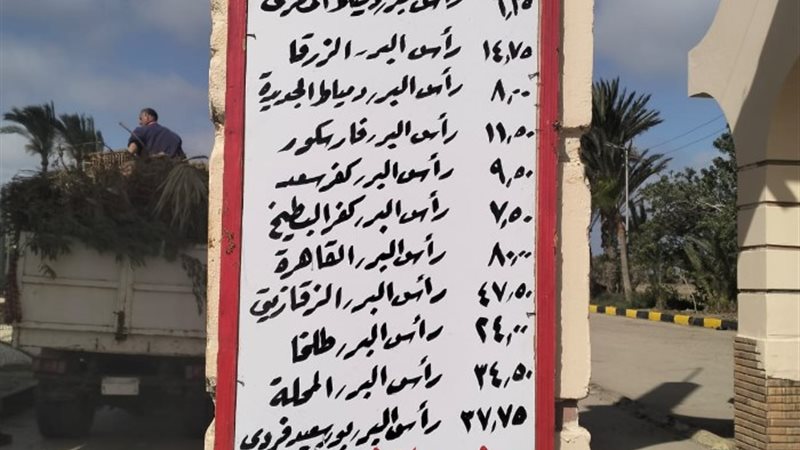 رأس البر/دمياط المصرى ٦,٢٥
رأس البر/الزرقا ١٤,٧٥
رأس البر/دمياط الجديدة ٨,٠٠
رأس البر/فارسكور ١١,٥٠
رأس البر/كفر سعد ٩,٥٠
رأس البر/كفر البطيخ ٧,٥٠
رأس البر/القاهرة ٨٠,٠٠
رأس البر/الزقازيق ٤٧,٥٠
رأس البر/طلخا ٢٤,٠٠
رأس البر/المحلة ٣٤,٥٠
رأس البر/بورسعيد فردى ٣٧,٧٥